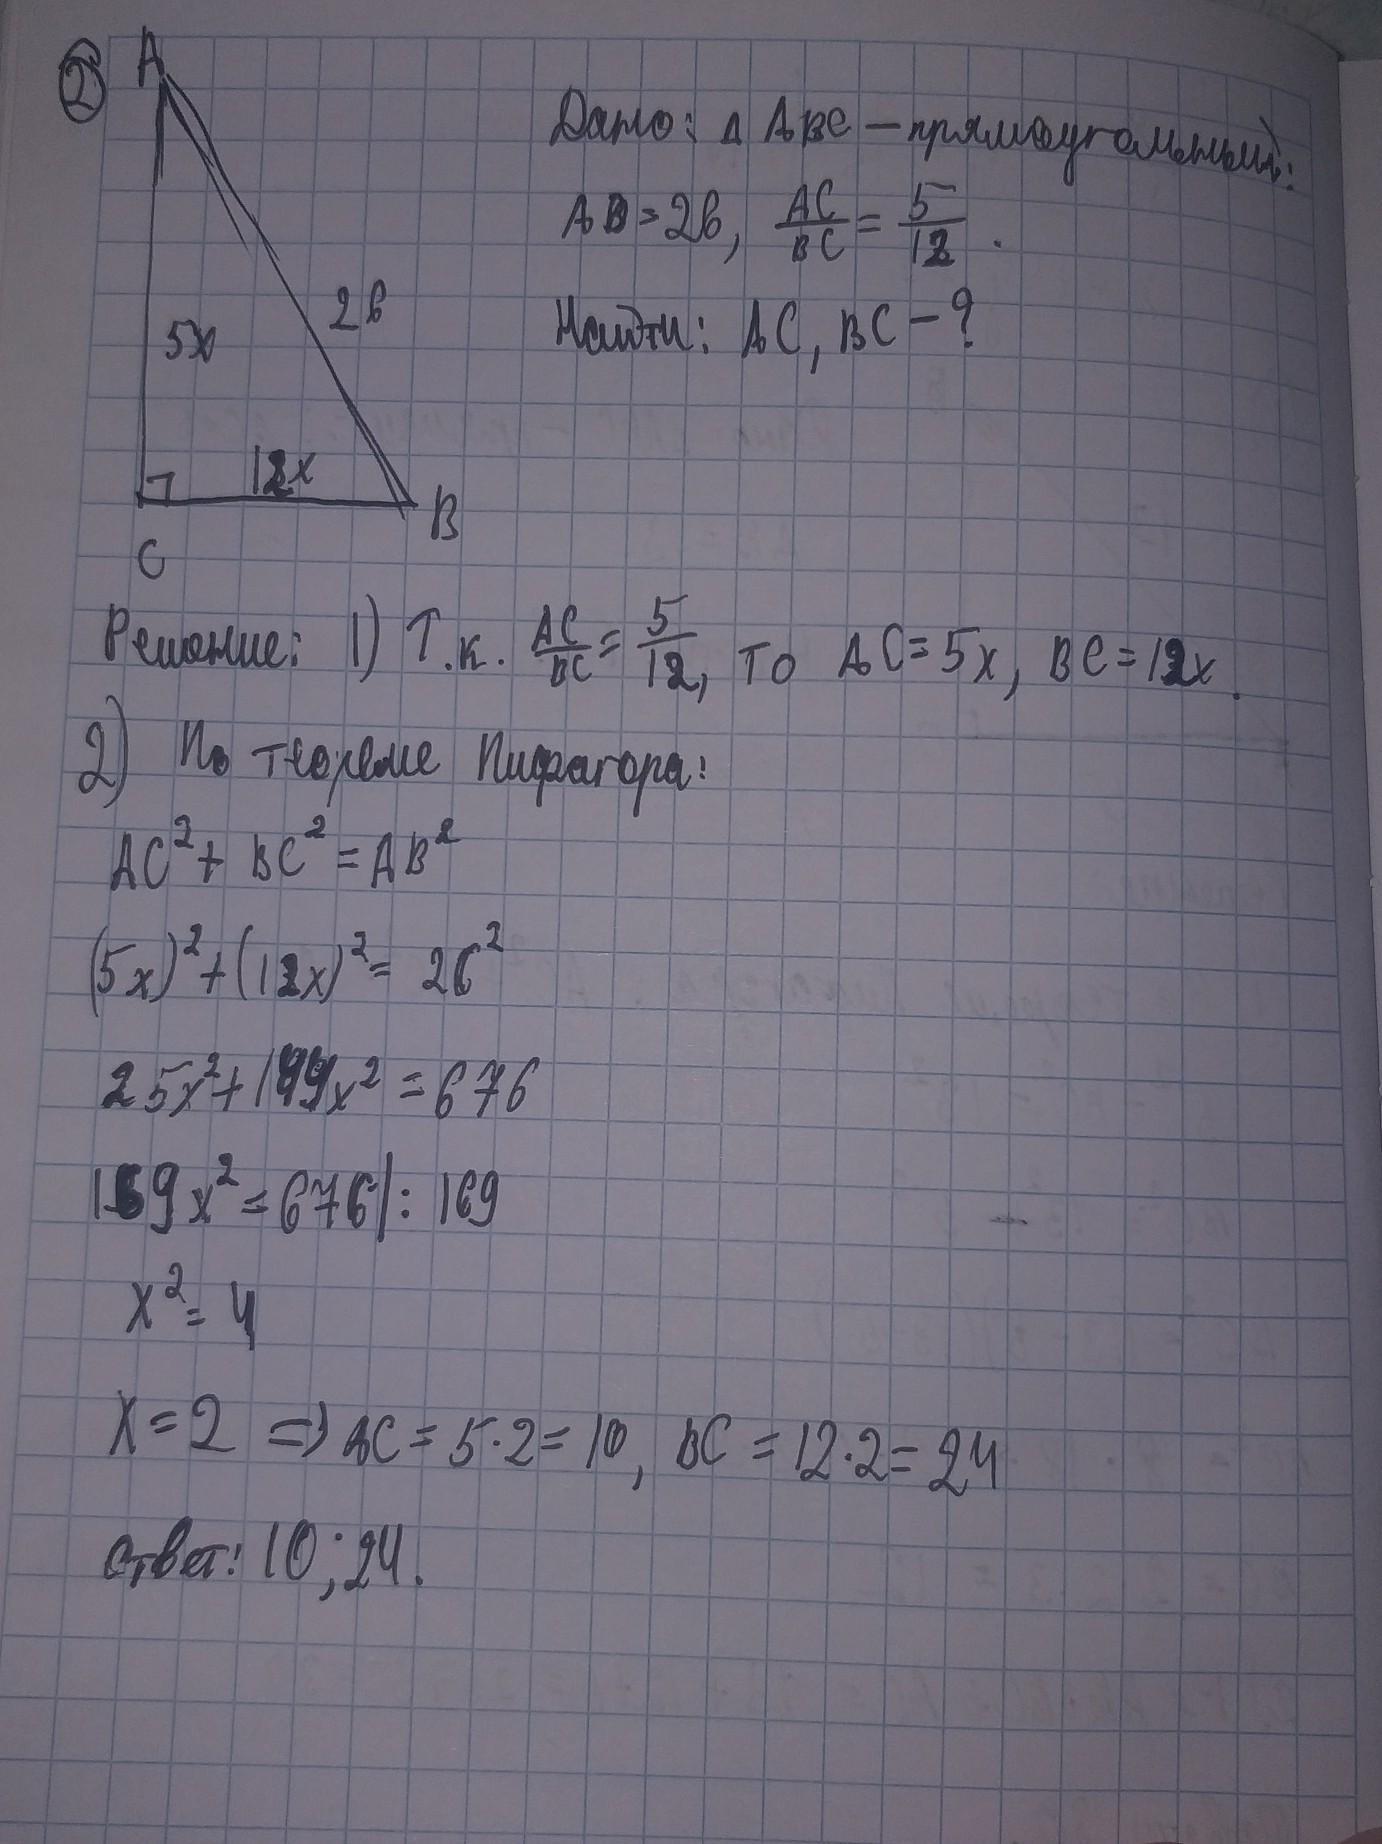 2
A
Дано: Δ ABC – прямоугольный:
AB = 26, AC/BC = 5/12.
Найти: AC, BC – ?
26
5x
12x
B
C
Решение: 1) Т.к. AC/BC = 5/12, то AC = 5x, BC = 12x.
2) По теореме Пифагора:
AC² + BC² = AB²
(5x)² + (12x)² = 26²
25x² + 144x² = 676
169x² = 676 | : 169
x² = 4
x = 2 => AC = 5·2 = 10, BC = 12·2 = 24
Ответ: 10; 24.